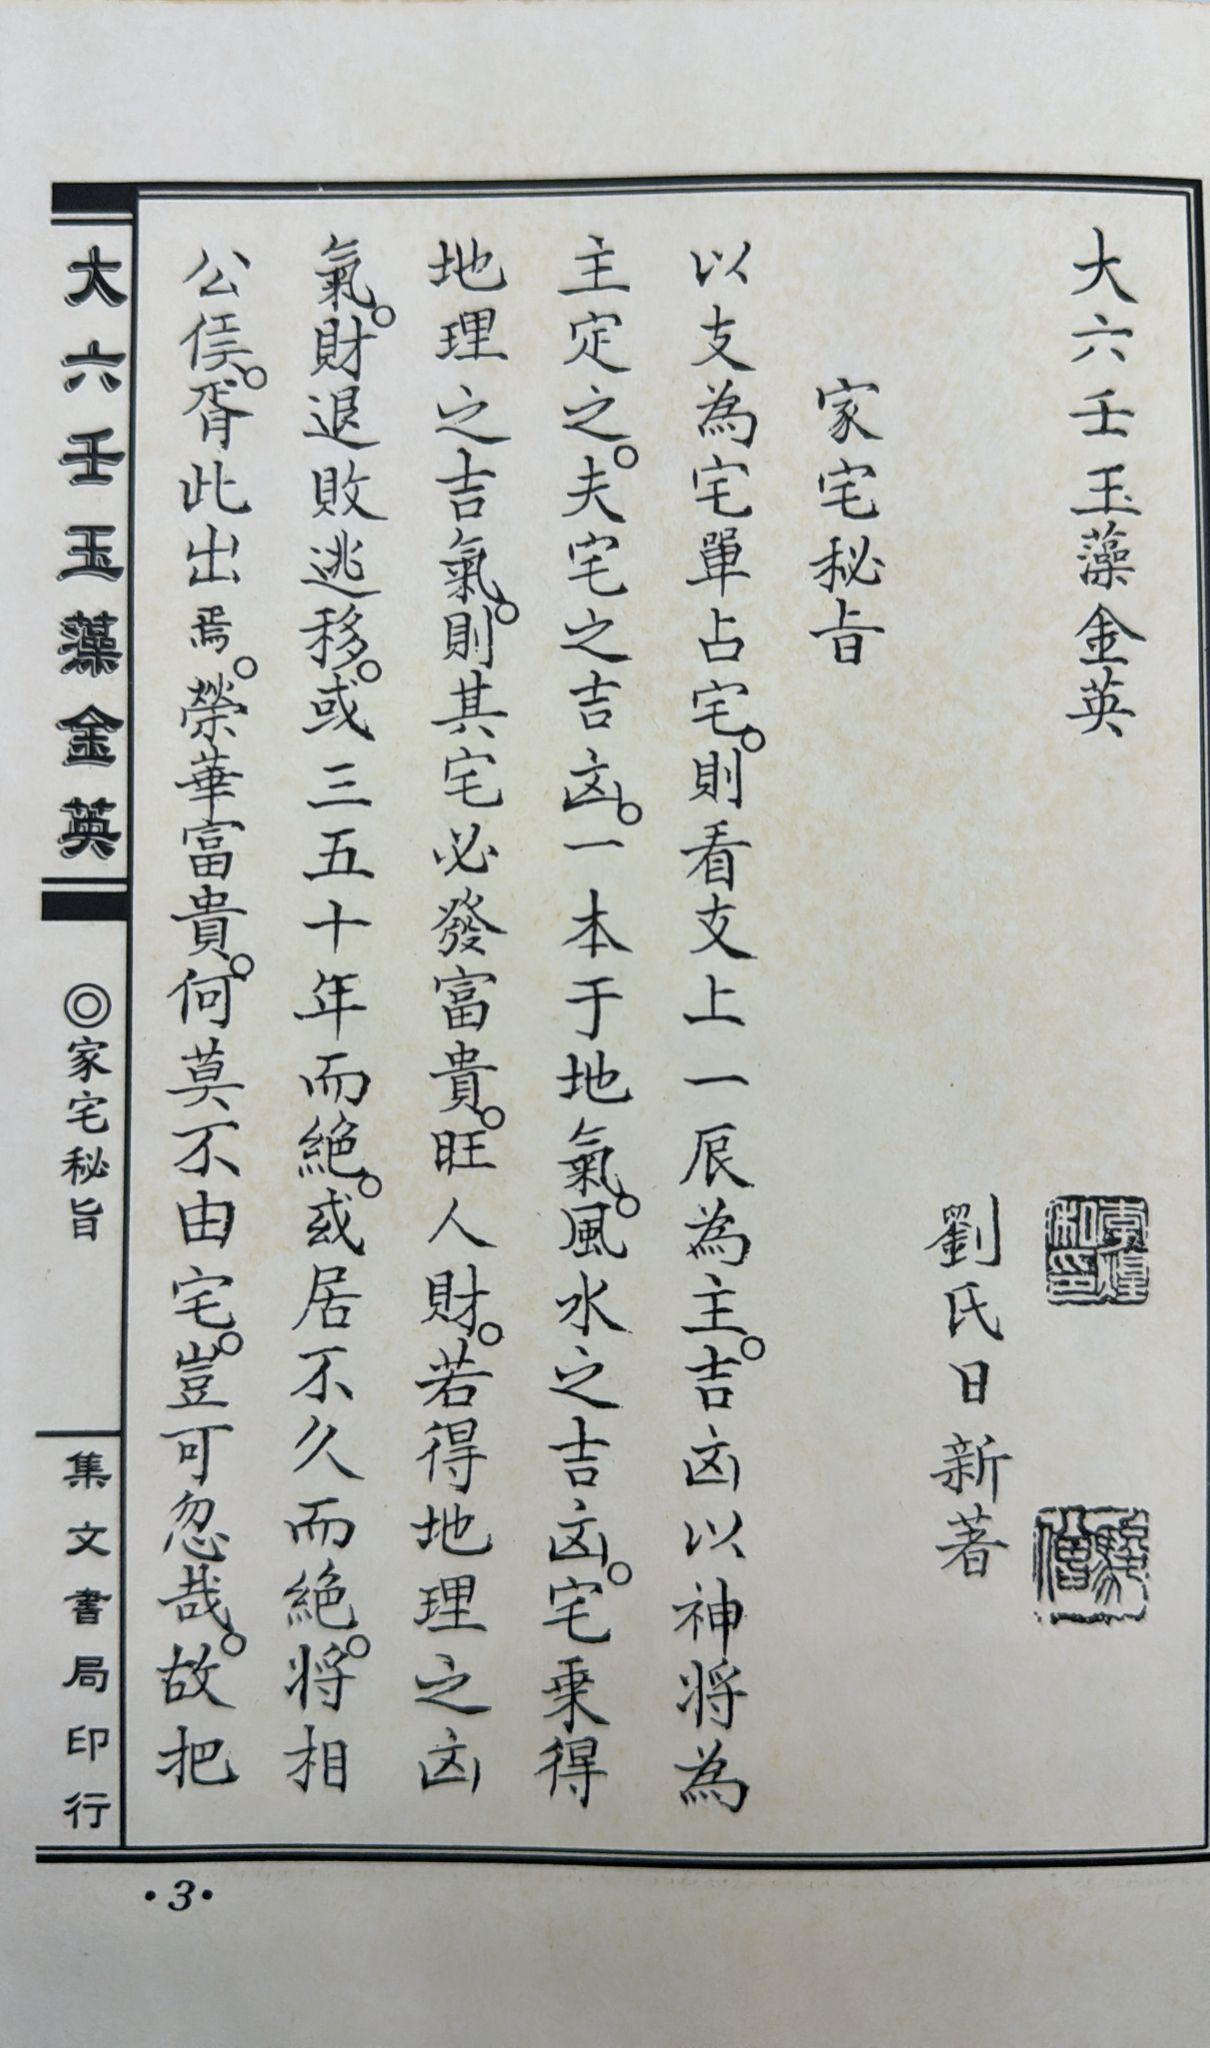 大六壬玉藻金英
劉氏日新著
家宅秘旨
以支為宅單占宅。則看支上一辰為主。吉凶以神將為
主定之。夫宅之吉凶。一本于地氣。風水之吉凶。宅乘得
地理之吉氣。則其宅必發富貴。旺人財。若得地理之凶
氣。財退敗逃移。或三五十年而絕。或居不久而絕。將相
公侯。胥此出焉。榮華富貴。何莫不由宅。豈可忽哉。故把
大六壬玉藻金英
◎家宅秘旨
集文書局印行
•3•